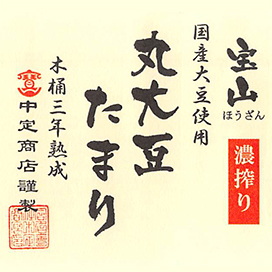 宝山
ほうざん
濃搾り
国産大豆使用
丸大豆
たまり
木桶三年熟成
寶
中定商店謹製